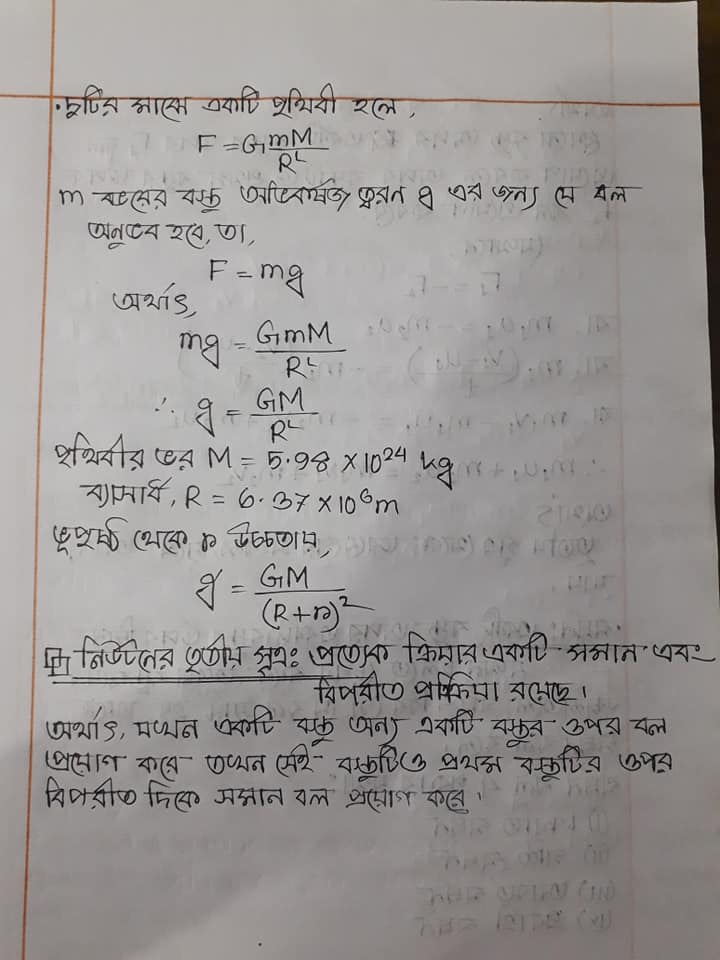 • দুটির মাঝে একটি পৃথিবী হলে,
F = G mM/R²
m ভরের বস্তু অভিকর্ষজ ত্বরন g এর জন্য যে বল
অনুভব হবে, তা,
F = mg
অর্থাৎ,
mg = GmM/R²
∴ g = GM/R²
পৃথিবীর ভর M = 5.98 × 10²⁴ kg
ব্যাসার্ধ, R = 6.37 × 10⁶ m
ভূপৃষ্ঠ থেকে h উচ্চতায়,
g' = GM/(R+h)²
নিউটনের তৃতীয় সূত্রঃ প্রত্যেক ক্রিয়ার একটি সমান এবং
বিপরীত প্রতিক্রিয়া রয়েছে।
অর্থাৎ, যখন একটি বস্তু অন্য একটি বস্তুর ওপর বল
প্রয়োগ করে তখন সেই বস্তুটিও প্রথম বস্তুটির ওপর
বিপরীত দিকে সমান বল প্রয়োগ করে।